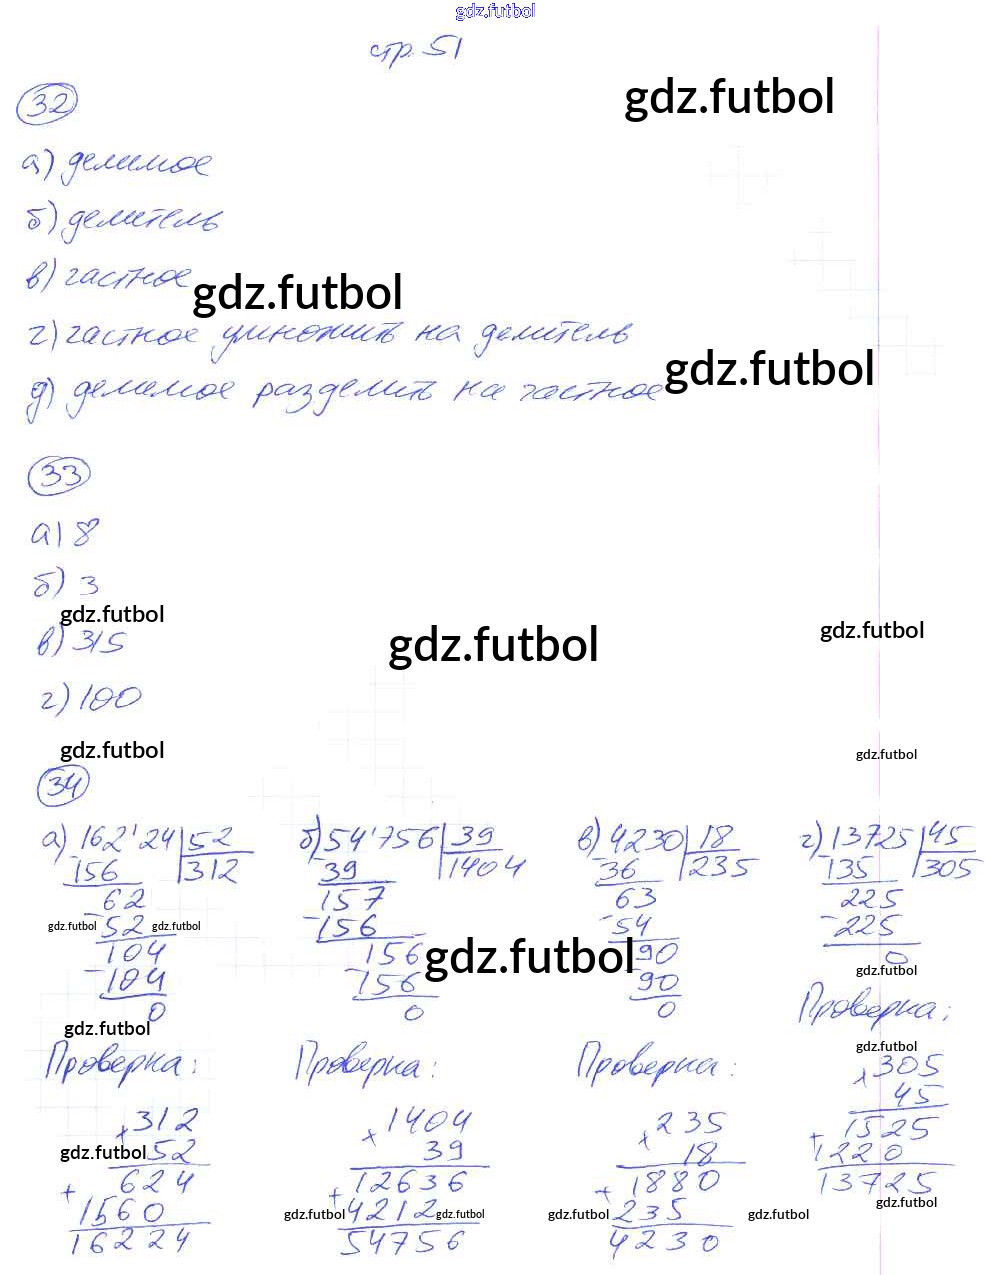 gdz.futbol
стр. 51
32
gdz.futbol
а) делимое
б) делитель
в) частное
gdz.futbol
г) частное умножить на делитель
д) делимое разделить на частное
gdz.futbol
33
а) 8
б) 3
gdz.futbol
в) 315
gdz.futbol
gdz.futbol
г) 100
gdz.futbol
gdz.futbol
34
а) 162'24 | 52 б) 54'756 | 39 в) 4230 | 18 г) 13725 | 45
156 | 312 39 | 1404 36 | 235 135 | 305
62 157 63 225
- 52 - 156 - 54 - 225
gdz.futbol gdz.futbol
104 156 90 0
gdz.futbol gdz.futbol
- 104 - 156 90
0 0 0
Проверка:
gdz.futbol
Проверка: Проверка: Проверка:
gdz.futbol
x 305
45
1525
+ 1220
13725
x 312 x 1404 x 235
52 39 18
gdz.futbol
624 12636 1880
+ 1560 + 4212 + 235
gdz.futbol gdz.futbol gdz.futbol gdz.futbol gdz.futbol
16224 54756 4230